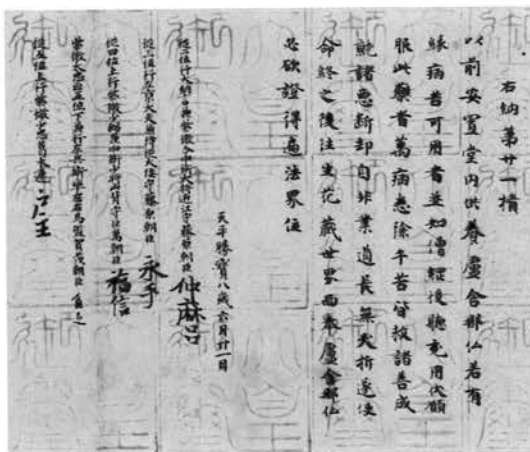 右納廿一横
以前安置堂内供養盧舍那仏若有
縁病苦可用者並知僧綱後聴充用伏願
服此藥者萬病悉除千苦皆救諸善成
就諸惡断却自非業道長無夭折遂使
命終之後往生花藏世界面奉盧舍那仏
必欲證得遍法界位
天平勝寳八歳六月廿一日
從二位行大納言兼紫微令中衛大將近江守藤原朝臣 仲麻呂
從三位行左京大夫兼侍從大倭守藤原朝臣 永手
從四位上行紫微少弼兼中衛少將山背守巨萬朝臣 福信
紫微大忠正五位下兼行左兵衛率左右馬監賀茂朝臣 角足
從五位上行紫微少忠葛木連 戸主